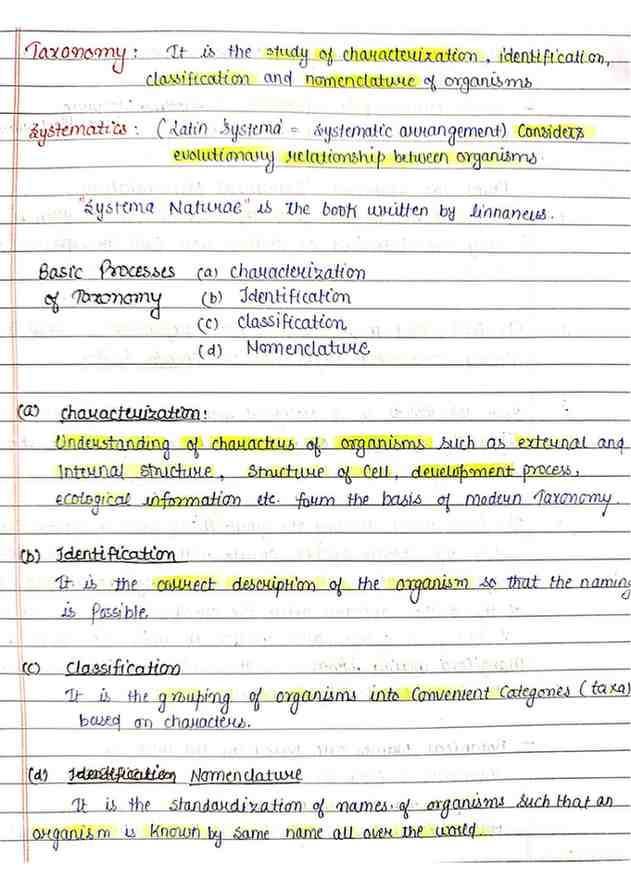 Taxonomy: It is the study of characterization, identification,
classification and nomenclature of organisms
Systematics: (Latin Systema = Systematic arrangement) Considers
evolutionary relationship between organisms.
"Systema Naturae" is the book written by linnaneus.
Basic Processes (a) characterization
of Taxonomy (b) Identification
(c) classification
(d) Nomenclature
(a) characterization:
Understanding of characters of organisms such as external and
Internal structure, structure of cell, development process,
ecological information etc. form the basis of modern Taxonomy.
(b) Identification
It is the correct description of the organism so that the naming
is Possible.
(c) Classification
It is the grouping of organisms into Convenient Categories (taxa)
based on characters.
(d) Identification Nomenclature
It is the standardization of names of organisms such that an
organism is known by same name all over the world.